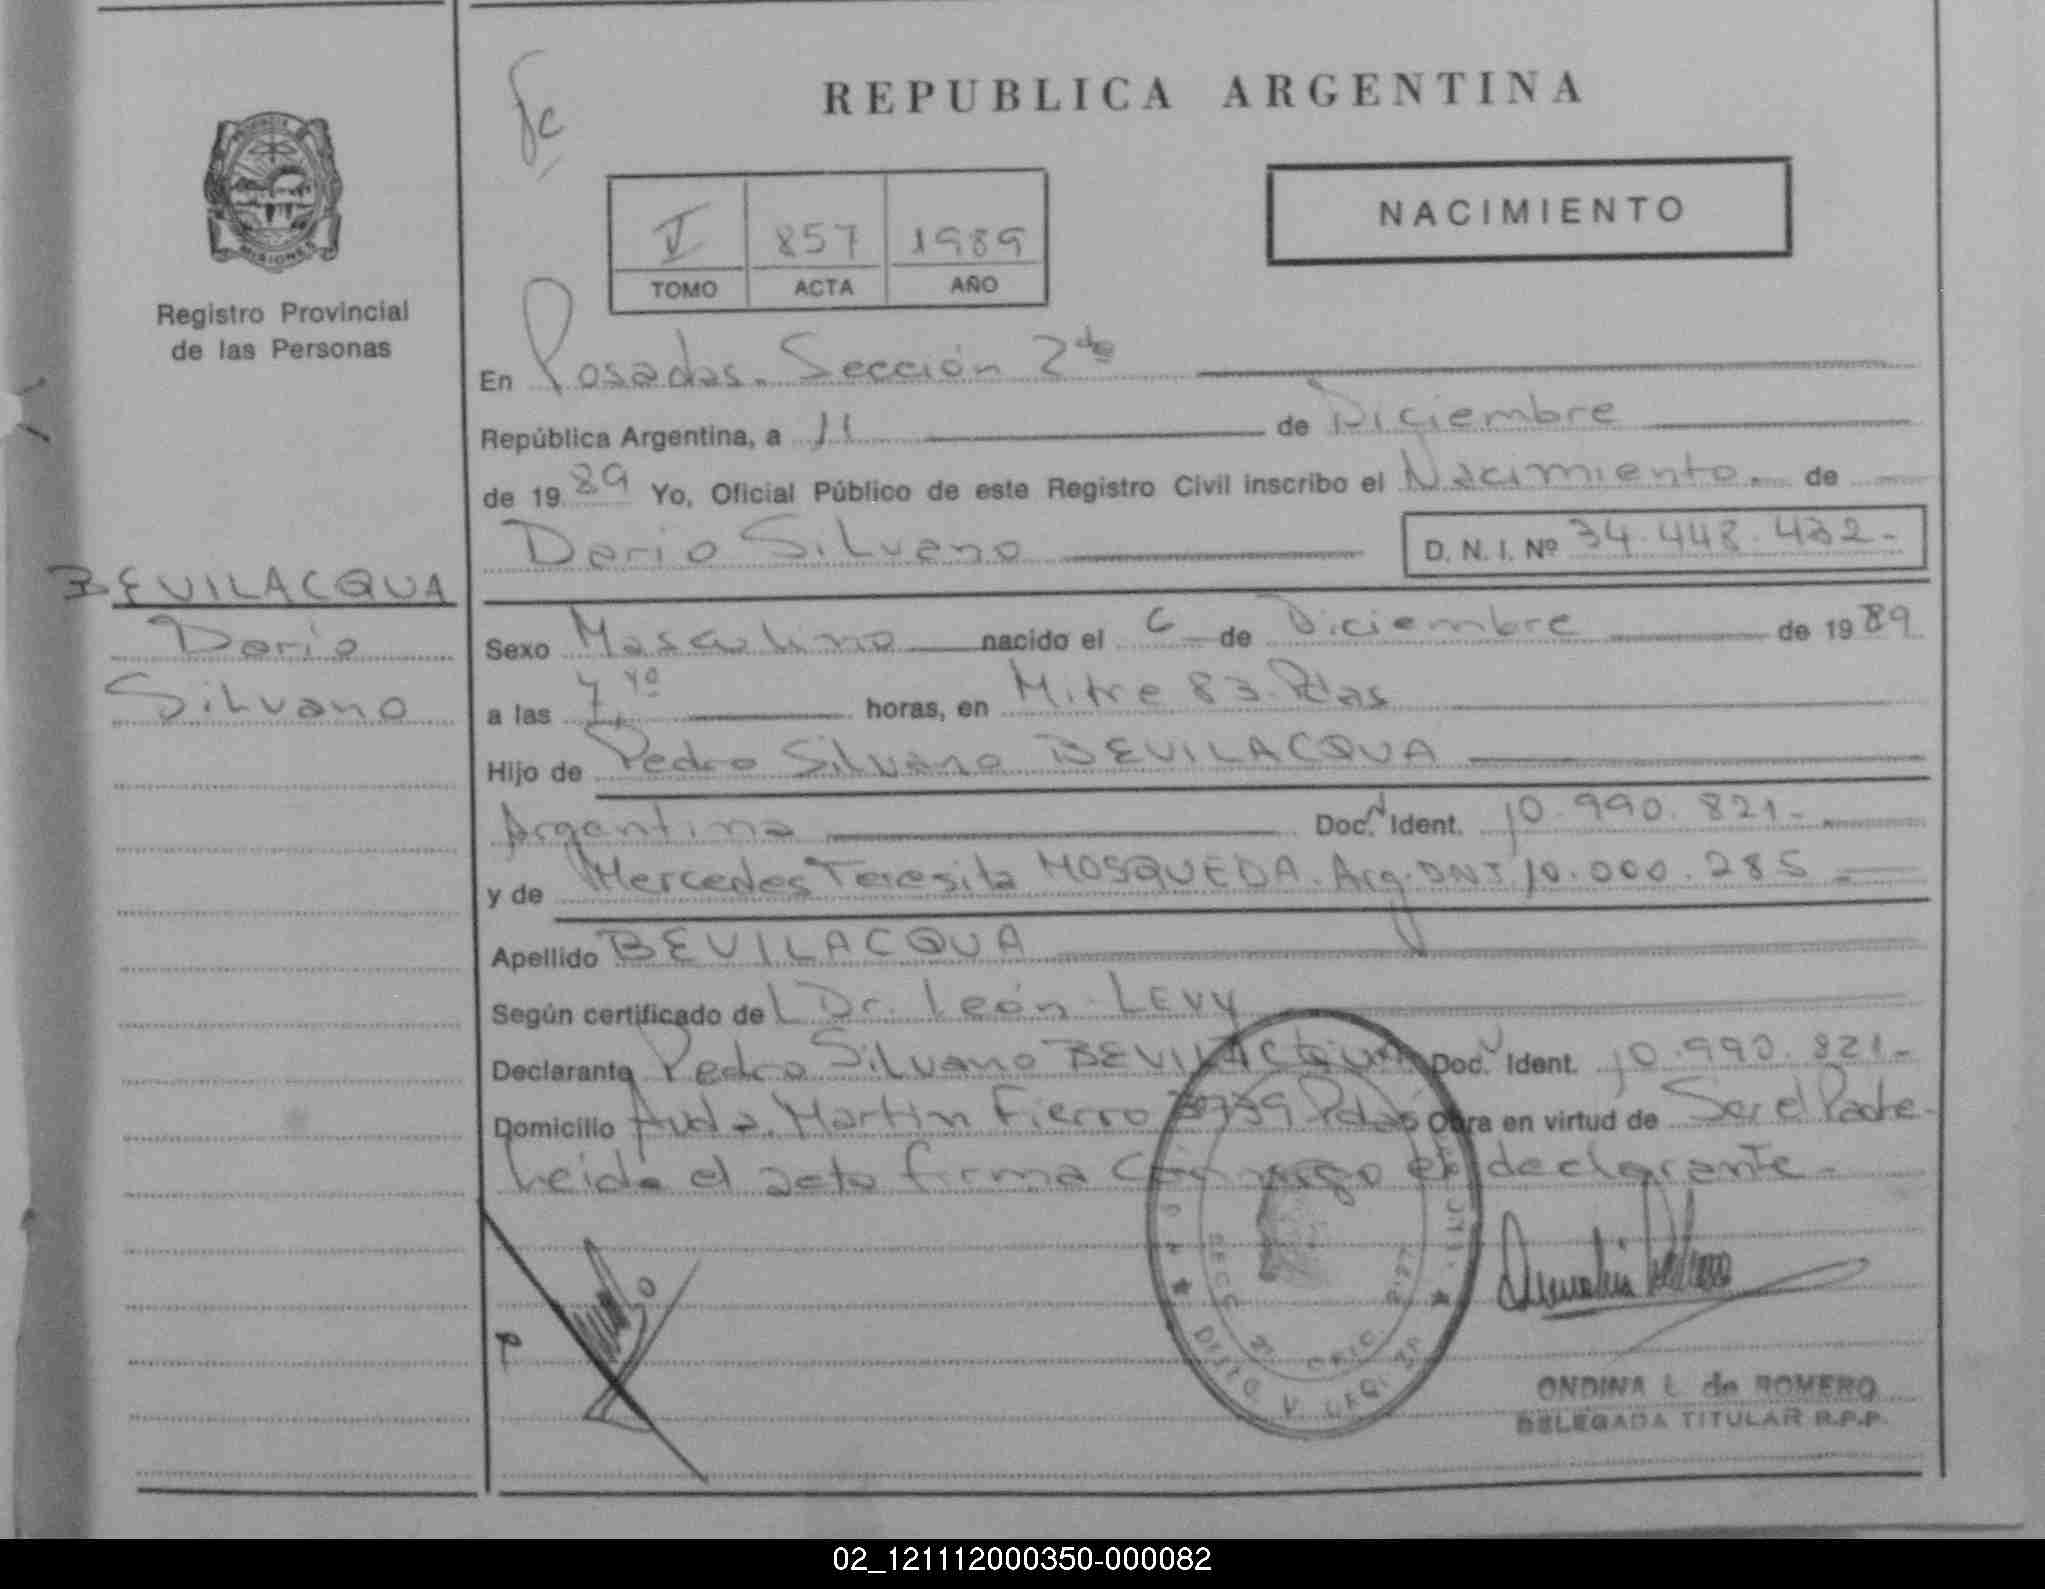 REPUBLICA ARGENTINA
PROVINCIA
MISIONES
Registro Provincial
de las Personas
NACIMIENTO
V 857 1989
TOMO ACTA AÑO
En Posadas. Sección 2da
República Argentina, a 11 de Diciembre
de 1989 Yo, Oficial Público de este Registro Civil inscribo el Nacimiento. de
Dario Silvano D. N. I. Nº 34.448.432-
BEVILACQUA
Dario
Silvano
Sexo Masculino nacido el 6 de Diciembre de 1989
a las 7,40 horas, en Mitre 83. Pdas
Hijo de Pedro Silvano BEVILACQUA
Argentina Doc. Ident. 10.990.821-
y de Mercedes Teresita MOSQUEDA. Arg. DNI 10.000.285-
Apellido BEVILACQUA
Según certificado de L Dr. León LEVY
Declarante Pedro Silvano BEVILACQUA Doc. Ident. 10.990.821-
Domicilio Avda. Martin Fierro Pdas Obra en virtud de Ser el Padre-
Leida el acta firma Conmigo el declarante-
ONDINA L. de ROMERO
DELEGADA TITULAR R.P.P.
02_121112000350-000082